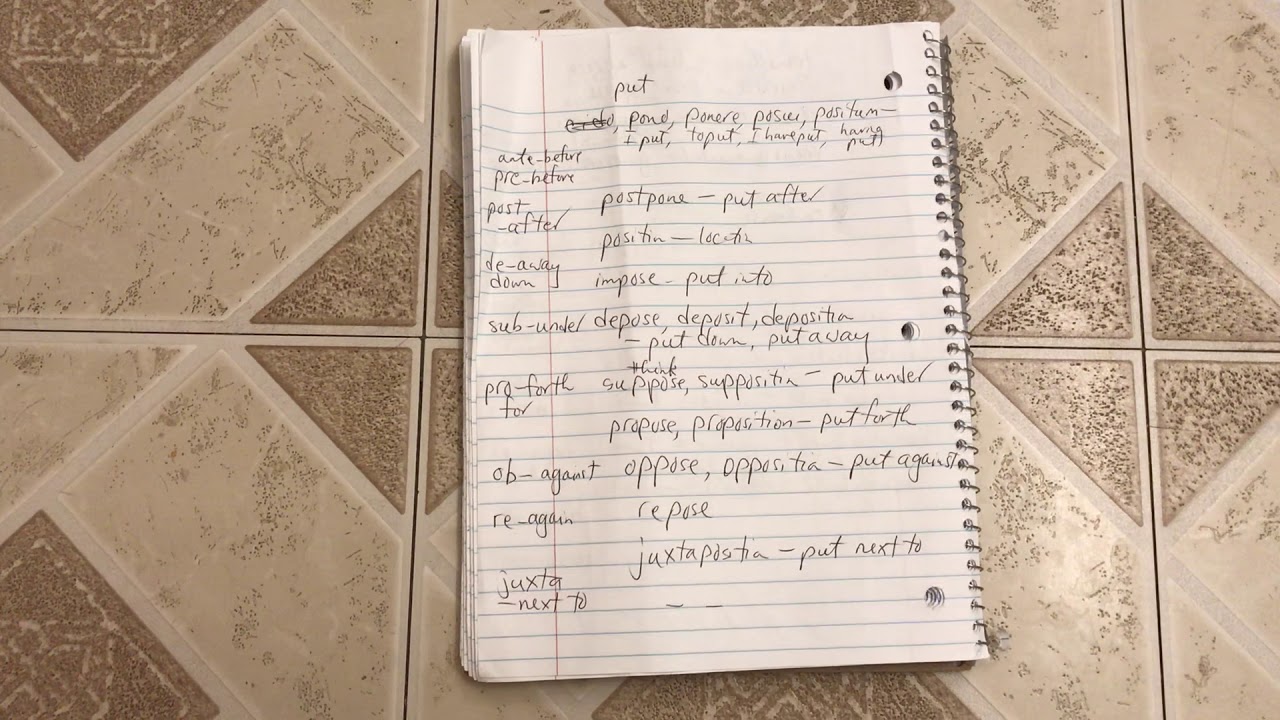 put
pono, ponere, posui, positum—
I put, to put, I have put, having
put)
ante-before
pre-before
post
-after
postpone — put after
position — location
de-away
down
impose - put into
sub-under
depose, deposit, deposition
— put down, put away
think
suppose, supposition — put under
pro-forth
for
propose, proposition — put forth
ob- against
oppose, opposition — put against
re-again
repose
juxtaposition — put next to
juxta
—next to
— —